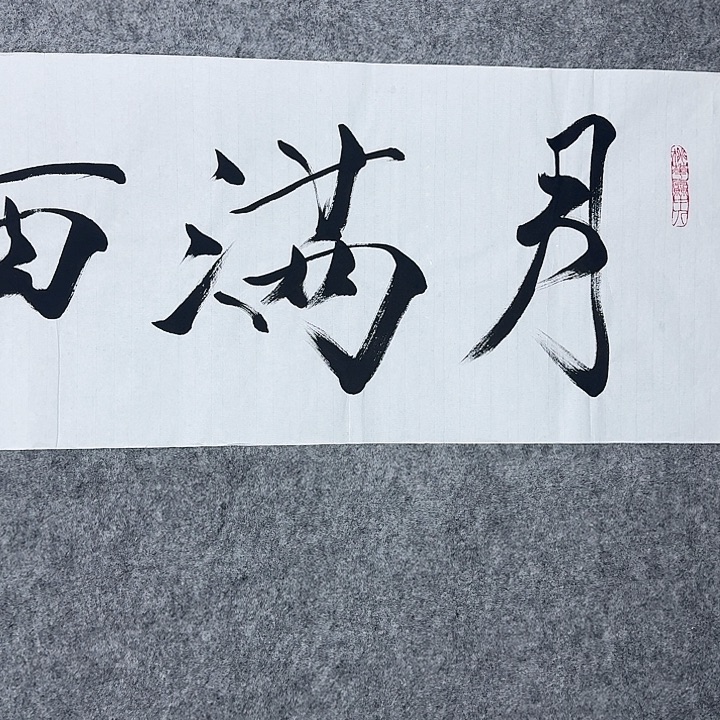 月满西